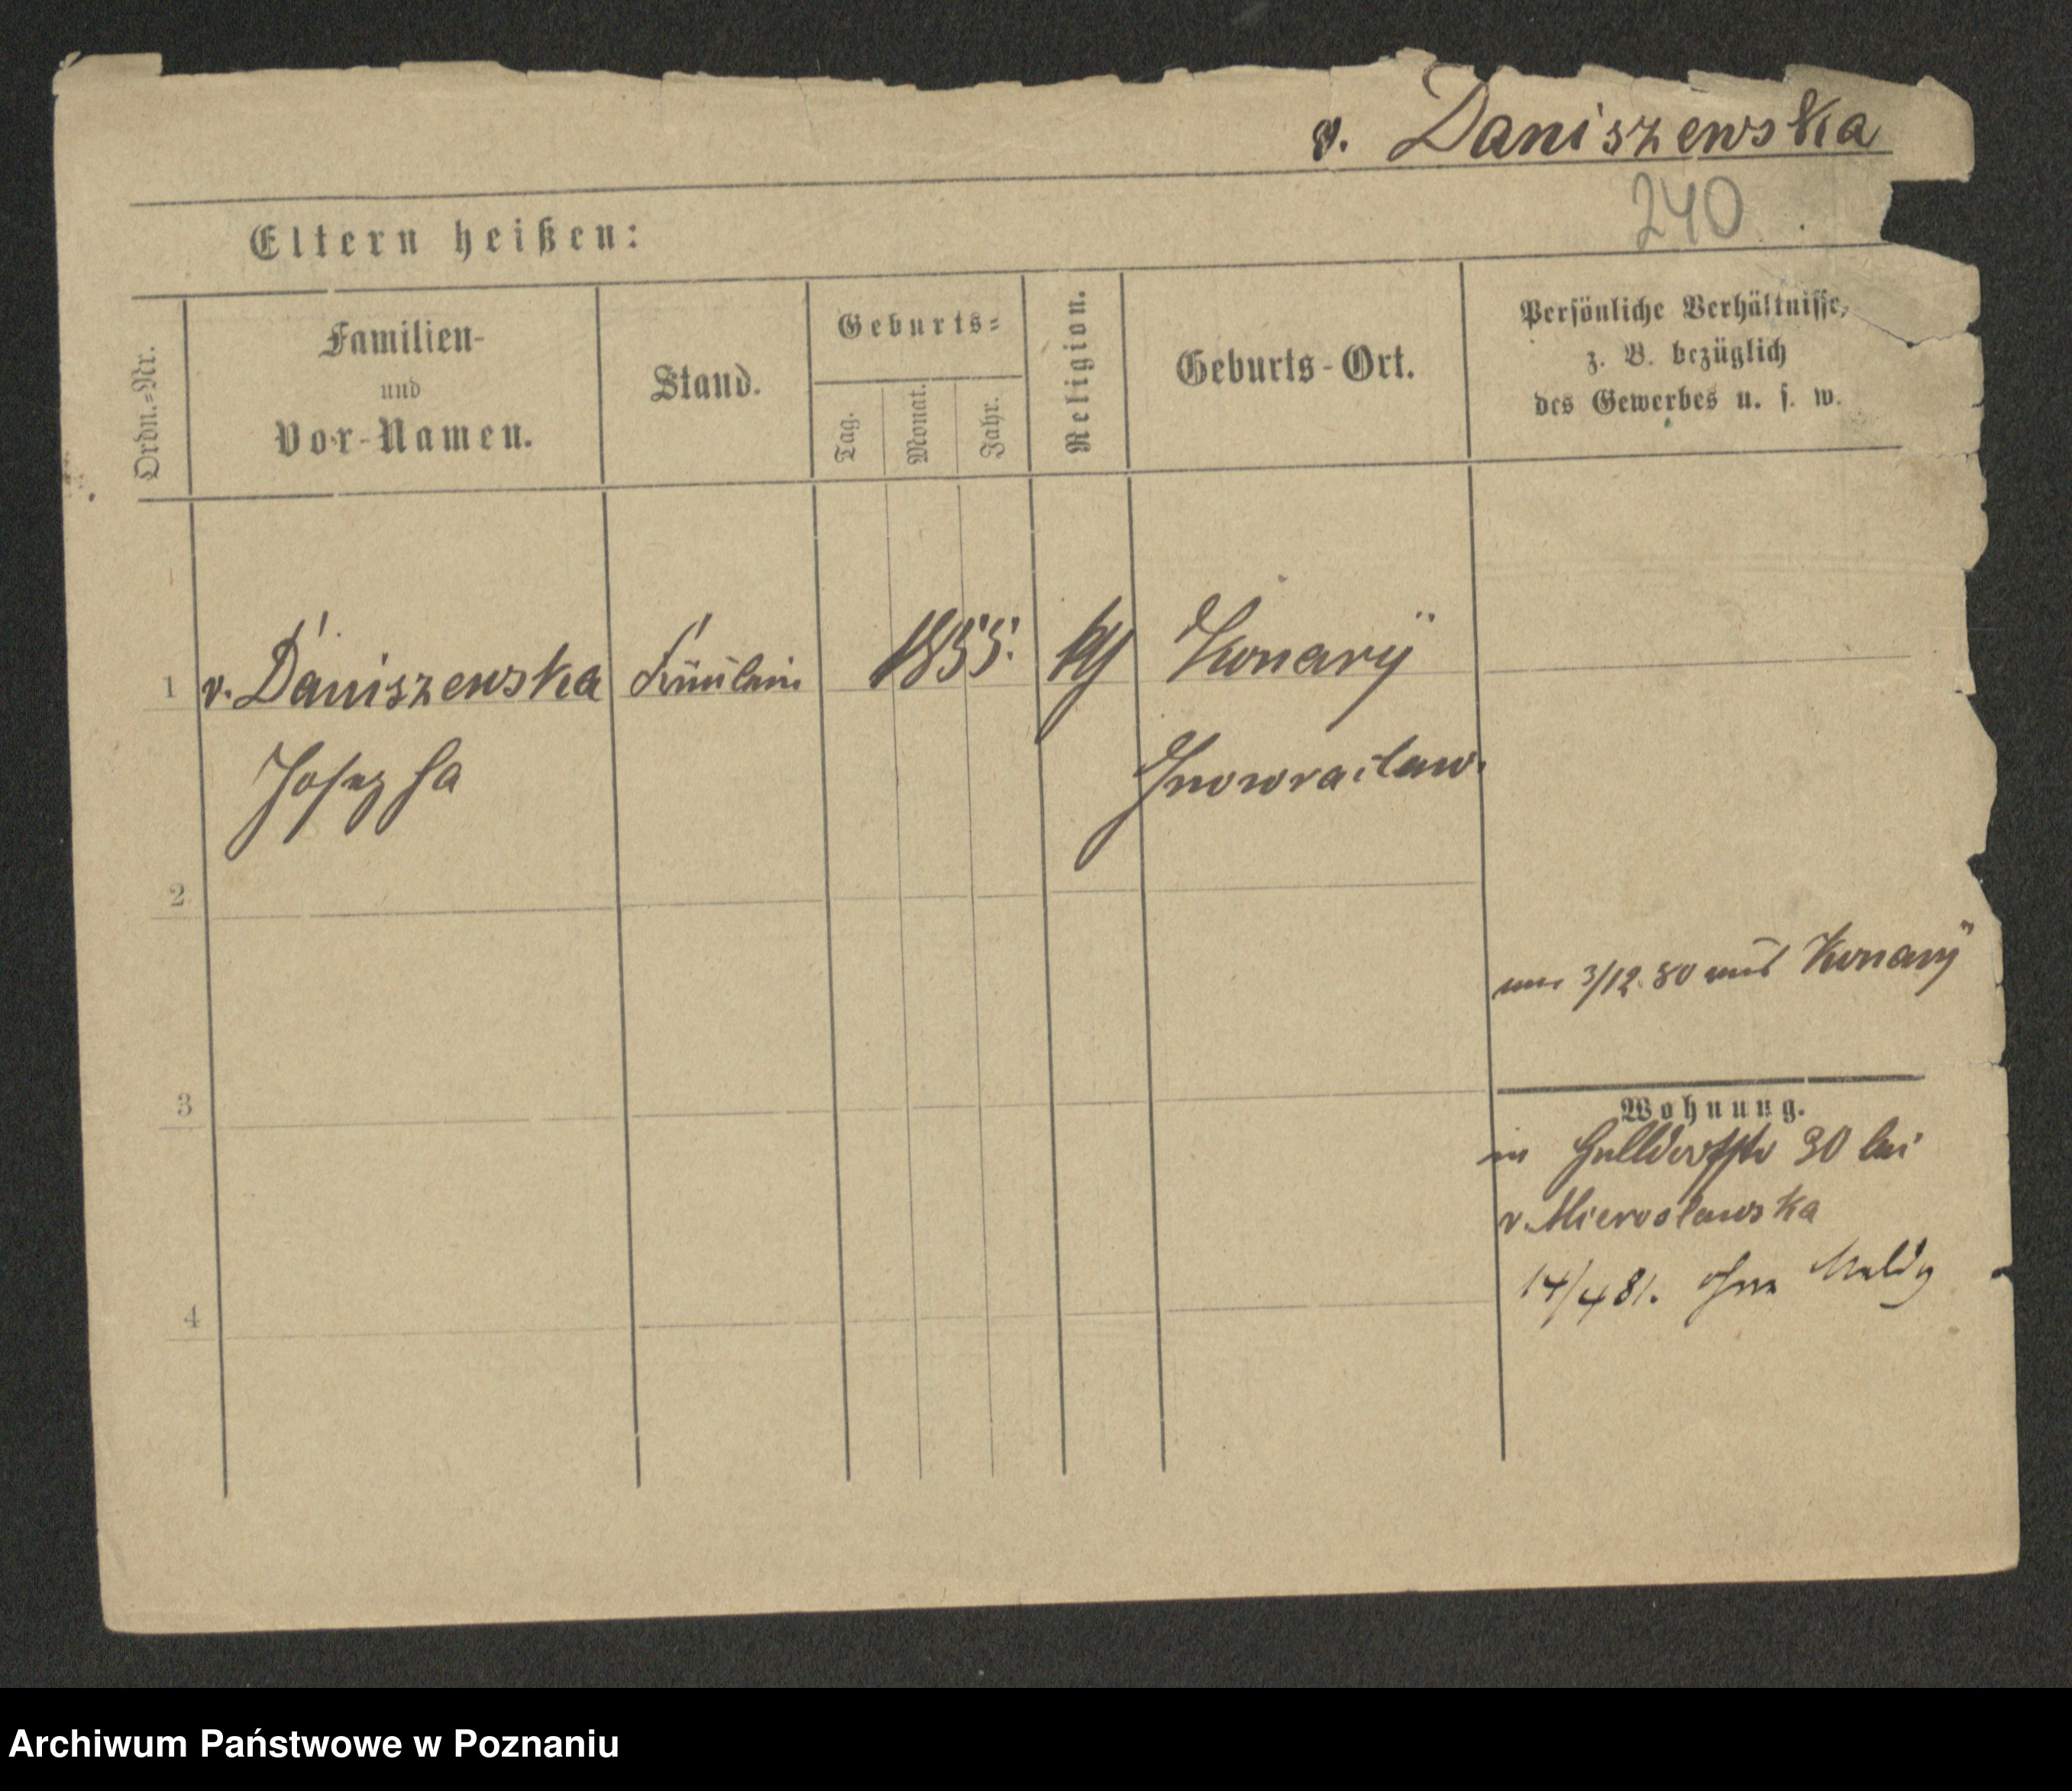 v. Daniszewska
240
Eltern heißen:
Ordn.-Nr.
Familien-
und
Vor-Namen.
Stand.
Geburts-
Tag.
Monat.
Jahr.
Religion.
Geburts-Ort.
Persönliche Verhältnisse,
z. B. bezüglich
des Gewerbes u. s. w.
1 v. Daniszewska Fräulein 1855. Konary
Josepha Inowraclaw.
2
3/12. 80 aus Konary
3
Wohnung.
in 30 bei
v. Mieroslawska
14/4 81. ohne Meldg
4
Archiwum Państwowe w Poznaniu